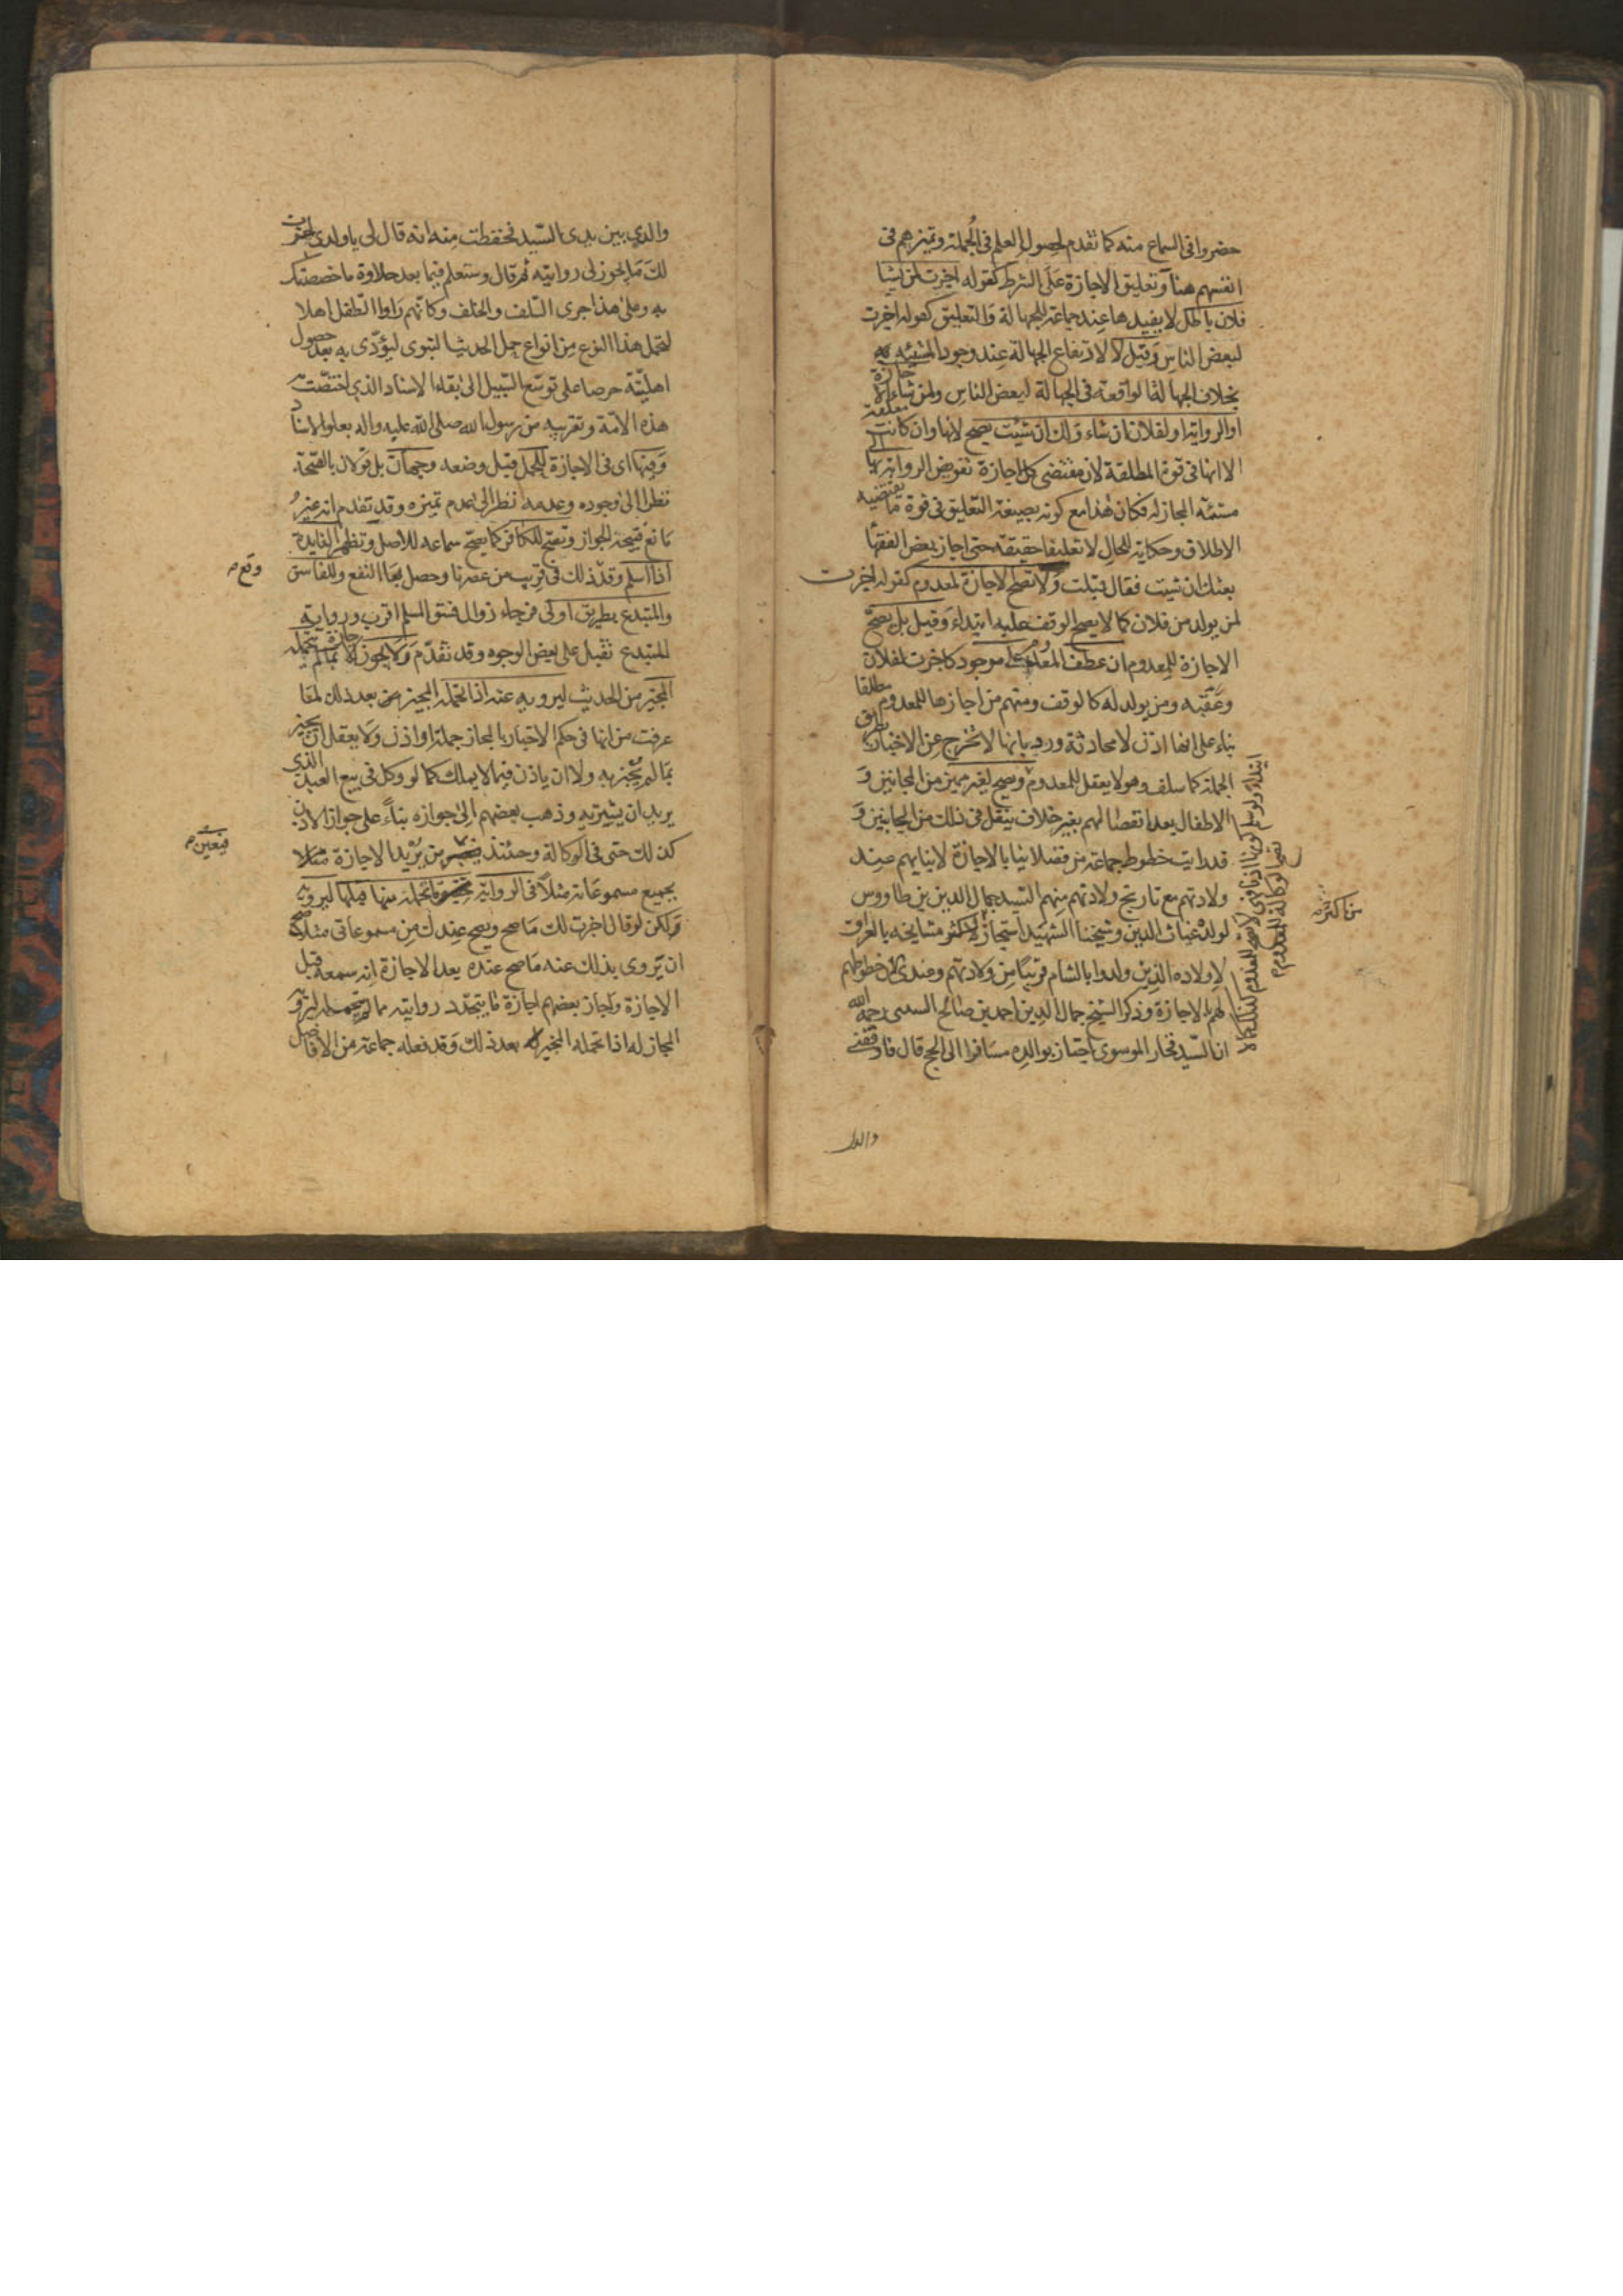 حضروا فى السماع منه كما تقدم لحصول العلم فى الجملة وتميزهم فى
انفسهم هنا وتعليق الاجازة على الشرط كقوله اجزت لمن يشا
فلان باطل لا يفيدها عند جماعة للجهالة والتعليق كقوله اجزت
لبعض الناس وقيل لا لارتفاع الجهالة عند وجود المشيئه
بخلاف الجهالة الواقعة فى الجهالة لبعض الناس ولمن شاء الاجازة
او الرواية او لفلان ان شاء ولك ان شيت يصح لانها وان كانت معلقة
الا انها فى قوة المطلقة لان مقتضى كل اجازة تفويض الرواية بها الى
مشيئه المجاز له فكان هذا مع كونه بصيغة التعليق فى قوة ما يقتضيه
الاطلاق وحكاية للحال لا تعليقا حقيقة حتى اجاز بعض الفقها
بعتك ان شيت فقال قبلت ولا تصح الاجازة لمعدوم كقوله اجزت
لمن يولد من فلان كما لا يصح الوقف عليه ابتداء وقيل بل يصح
الاجازة للمعدوم ان عطف المعدوم على موجود كاجزت لفلان
وعقبه ومن يولد له كالوقف ومنهم من اجازها للمعدوم مطلقا
بناء على انها اذن لا محادثة ورد بانها لا تخرج عن الاخبار بطريق
الجملة كما سلف وهو لا يعقل للمعدوم ويصح لغير مميز من المجانين و
الاطفال بعد انفصالهم بغير خلاف ينقل فى ذلك من الجانبين و
قد رايت خطوط جماعة من فضلائنا بالاجازة لابنايهم عند
ولادتهم مع تاريخ ولادتهم منهم السيد جمال الدين بن طاووس
لولده غياث الدين وشيخنا الشهيد استجاز لاكثر مشايخه بالعراق
لاولاده الذين ولدوا بالشام قريبا من ولادتهم وعندى الان خطوطهم
لهم بالاجازة وذكر الشيخ جمال الدين احمد بن صالح السيبى رحمه الله
ان السيد فخار الموسوى اجتاز بوالده مسافرا الى الحج قال فاوقفنى
ابتداء ولو سلم كونها اذنا فهى لا تصح للمعدوم كذلك كما لا
تصح الوكالة للمعدوم
من اكثر
والدى
والدى بين يدى السيد فحفظت منه انه قال لى يا ولدى اجزت
لك ما يجوز لى روايته ثم قال وستعلم فيما بعد حلاوة ما خصصتك
به وعلى هذا جرى السلف والخلف وكانهم راوا الطفل اهلا
لتحمل هذا النوع من انواع حمل الحديث النبوى ليؤدى به بعد حصول
اهليته حرصا على توسع السبيل الى بقاء الاسناد الذى اختصت به
هذه الامة وتقريبه من رسول الله صلى الله عليه واله بعلو الاسناد
وفيها اى فى الاجازة للحمل قبل وضعه وجهان بل قولان بالصحة
نظرا الى وجوده وعدمه نظرا الى عدم تميزه وقد تقدم انه غير
مانع فيتجه الجواز وتصح للكافر كما يصح سماعه للاصل وتظهر الفايدة
اذا اسلم وقد ذلك فى قريب من عصرنا وحصل بها النفع وللفاسق
وقع
والمبتدع بطريق اولى فرجاء زوال فسق المسلم اقرب ورواية
المبتدع تقبل على بعض الوجوه وقد تقدم ولا يجوز الاجازة بما لم يتحمله
المجيز من الحديث ليرويه عنه اذا تحمله المجيز من بعد ذلك لما
عرفت من انها فى حكم الاخبار بالمجاز جملة او اذن ولا يعقل ان يجيز
بما لم يخبر به ولا ان ياذن فيما لا يملك كما لو وكل فى بيع العبد الذى
يريد ان يشتريه وذهب بعضهم الى جوازه بناء على جواز الاذن
كذلك حتى فى الوكالة وحينئذ من يريد الاجازة مثلا
فيتعين
بجميع مسموعاته مثلا فى الرواية ما تحمله منها قبلها ليرويه
ولكن لو قال اجزت لك ما صح ويصح عندك من مسموعاتى مثلا صح
ان يروى بذلك عنه ما صح عنده بعد الاجازة انه سمعه قبل
الاجازة واجاز بعضهم اجازة ما يتجدد روايته مما لم يتحمله ليرويه
المجاز له اذا تحمله المخير بعد ذلك وقد فعله جماعة من الافاضل